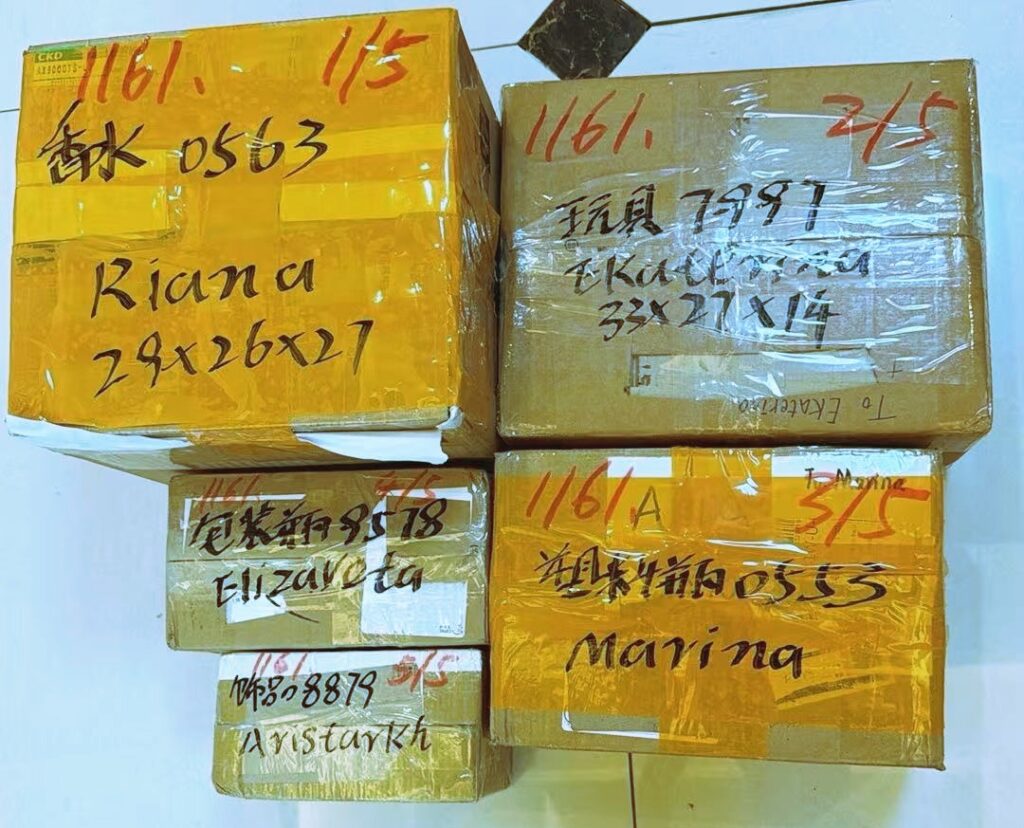 CKD
1161. 1/5
香水 0563
Riana
29×26×27
1161. 2/5
玩具 7997
Ekaterina
33×27×14
To Ekaterina
1161. 4/5
包装瓶 9578
Elizaveta
1161. A 3/5
To Marina
塑料瓶 0553
Marina
1161. 5/5
饰品 8879
Aristarkh